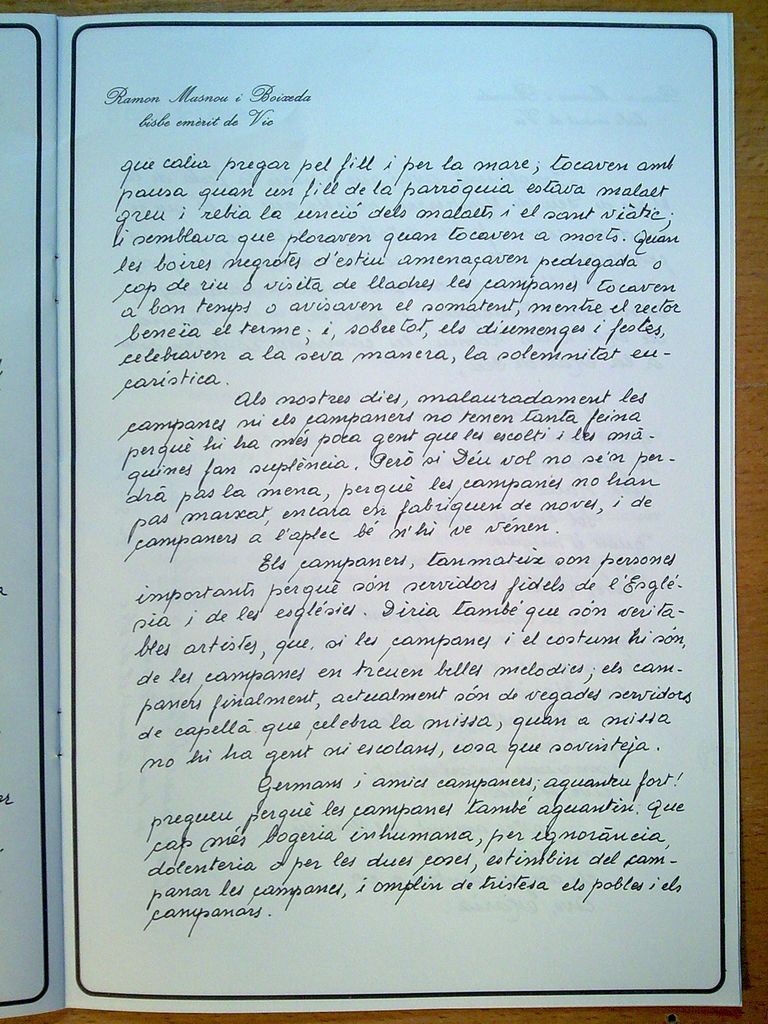 Ramon Masnou i Boixeda
bisbe emèrit de Vic
que calia pregar pel fill i per la mare; tocaven amb
pausa quan un fill de la parròquia estava malalt
greu i rebia la unció dels malalts i el sant viàtic;
i semblava que ploraven quan tocaven a morts. Quan
les boires negrotes d'estiu amenaçaven pedregada o
cop de riu o visita de lladres les campanes tocaven
a bon temps o avisaven el sometent, mentre el rector
beneïa el terme; i, sobretot, els diumenges i festes,
celebraven a la seva manera, la solemnitat eu-
carística.
Als nostres dies, malauradament les
campanes ni els campaners no tenen tanta feina
perquè hi ha més poca gent que les escolti i les mà-
quines fan suplència. Però si Déu vol no se'n per-
drà pas la mena, perquè les campanes no han
pas marxat, encara en fabriquen de noves, i de
campaners a l'aplec bé n'hi ve vénen.
Els campaners, tanmateix son persones
importants perquè són servidors fidels de l'Esglé-
sia i de les esglésies. Diria també que són verita-
bles artistes, que, si les campanes i el costum hi són,
de les campanes en treuen belles melodies; els cam-
paners finalment, actualment són de vegades servidors
de capellà que celebra la missa, quan a missa
no hi ha gent ni escolans, cosa que sovinteja.
Germans i amics campaners; aguanteu fort!
pregueu perquè les campanes també aguantin. Que
cap més bogeria inhumana, per ignorància,
dolenteria o per les dues coses, estimbin del cam-
panar les campanes, i omplin de tristesa els pobles i els
campanars.